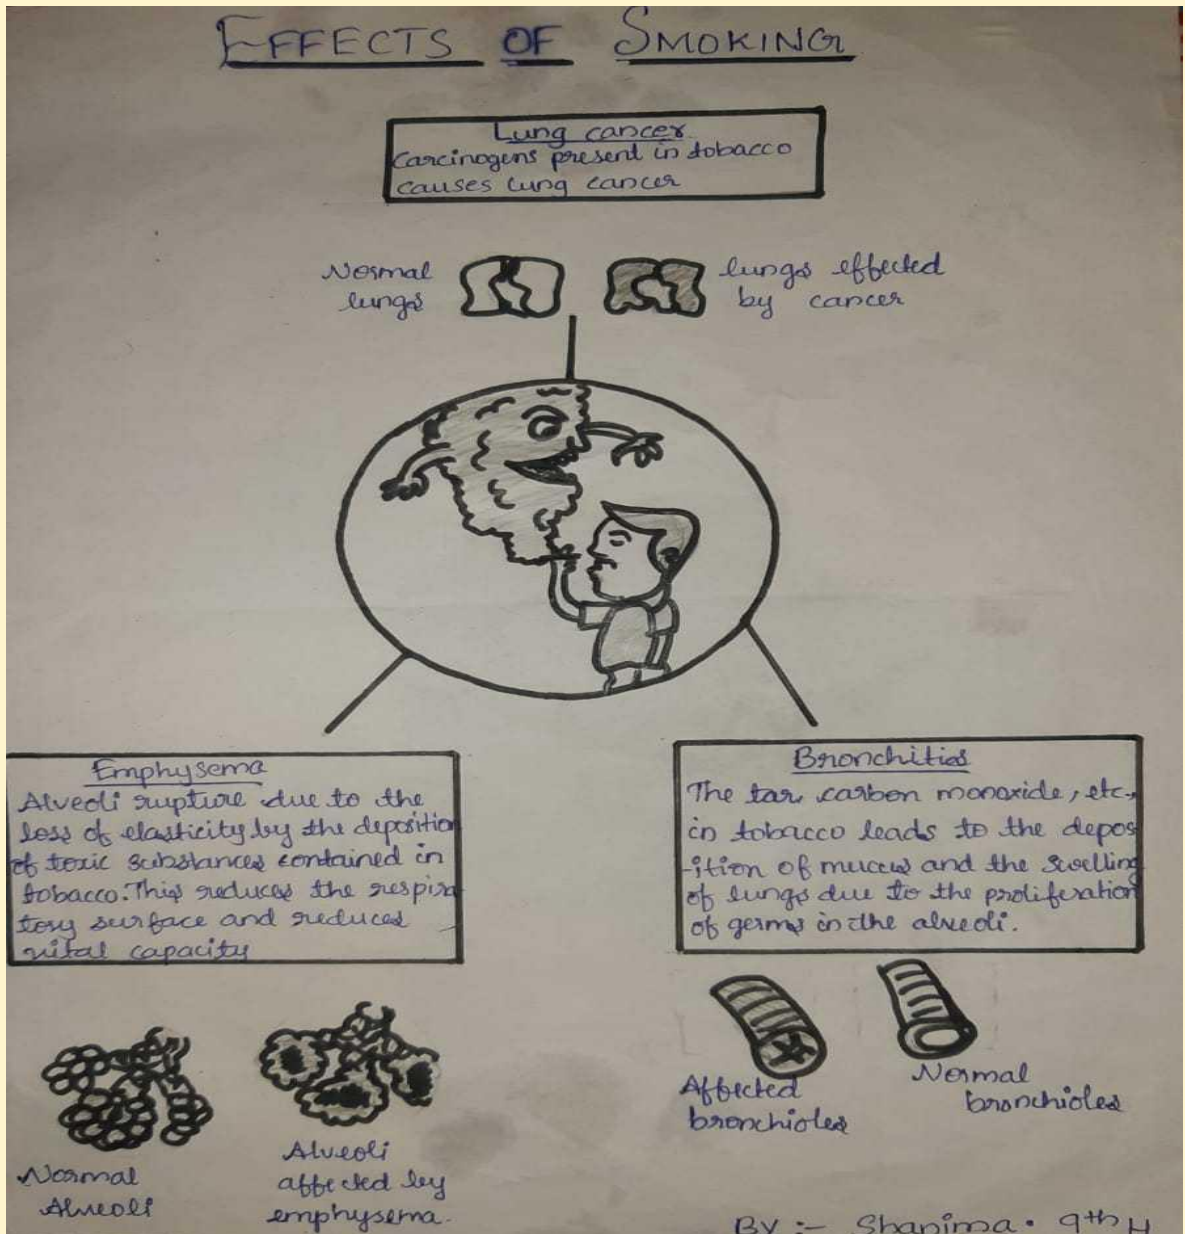 EFFECTS OF SMOKING
Lung cancer
Carcinogens present in tobacco
causes lung cancer
Normal
lungs
lungs effected
by cancer
Emphysema
Alveoli rupture due to the
loss of elasticity by the deposition
of toxic substances contained in
tobacco. This reduces the respira
tory surface and reduces
vital capacity
Normal
Alveoli
Alveoli
affected by
emphysema.
Bronchities
The tar, carbon monoxide, etc.,
in tobacco leads to the depos
-ition of mucus and the swelling
of lungs due to the proliferation
of germs in the alveoli.
Affected
bronchioles
Normal
bronchioles
BY :- Shanima. 9th H